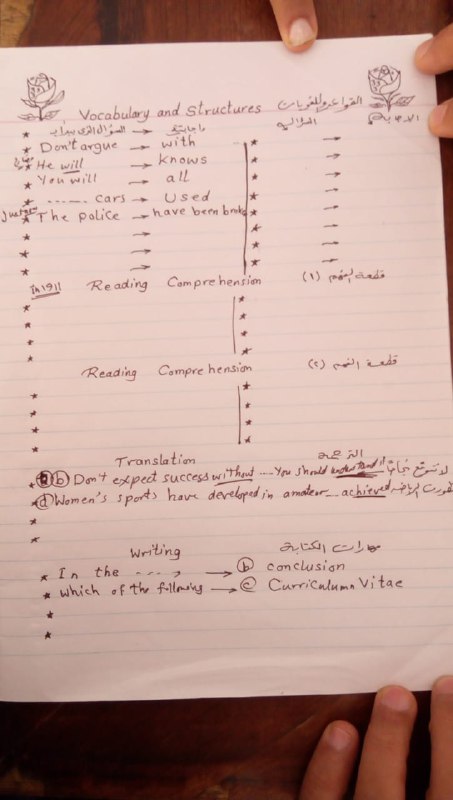 Vocabulary and Structures القواعد واللغويات
السؤال الذى يبدأ بـ → واجابتة السؤال الاجابة
★ Don't argue → with
★ He will → knows
★ You will → all
★ ........ cars → Used
★ The police → have been broke
In 1911 Reading Comprehension قطعة الفهم (١)
Reading Comprehension قطعة الفهم (٢)
Translation الترجمة
ⓑ Don't expect success without .... You should understand it لا تتوقع نجاحًا
ⓓ Women's sports have developed in amateur ... achieved تطورت الرياضه
Writing مهارات الكتابة
★ In the ----> → ⓑ conclusion
★ which of the following → ⓒ Curriculumn Vitae